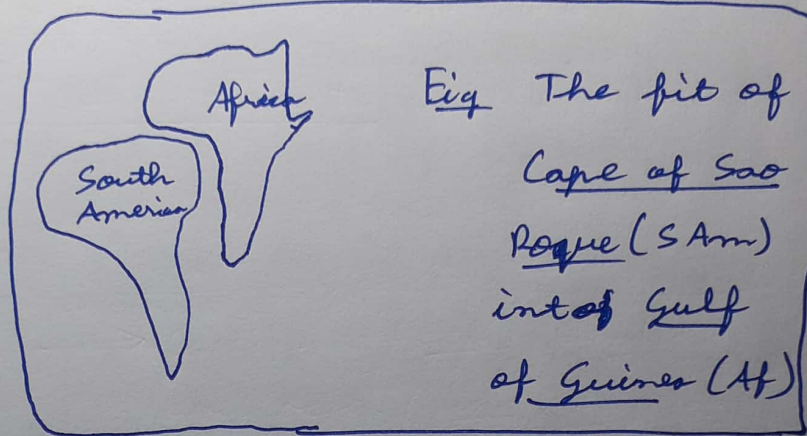 Africa
South
America
Eig The fit of
Cape of Sao
Roque (SAm)
into Gulf
of Guinea (Af)